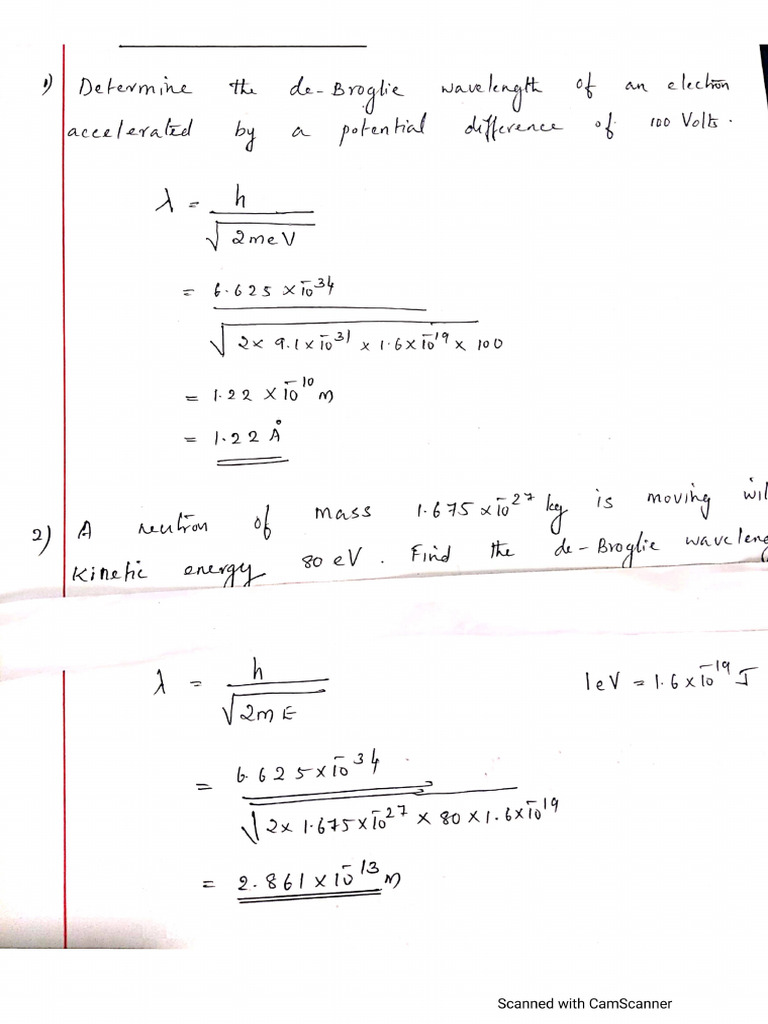 1) Determine the de-Broglie wavelength of an electron
accelerated by a potential difference of 100 Volts.
λ = h / √2meV
= 6.625 × 10⁻³⁴ / √2 × 9.1 × 10⁻³¹ × 1.6 × 10⁻¹⁹ × 100
= 1.22 × 10⁻¹⁰ m
= 1.22 Å
2) A neutron of mass 1.675 × 10⁻²⁷ kg is moving wi
Kinetic energy 80 eV. Find the de-Broglie waveleng
λ = h / √2mE 1eV = 1.6 × 10⁻¹⁹ J
= 6.625 × 10⁻³⁴ / √2 × 1.675 × 10⁻²⁷ × 80 × 1.6 × 10⁻¹⁹
= 2.861 × 10⁻¹³ m
Scanned with CamScanner